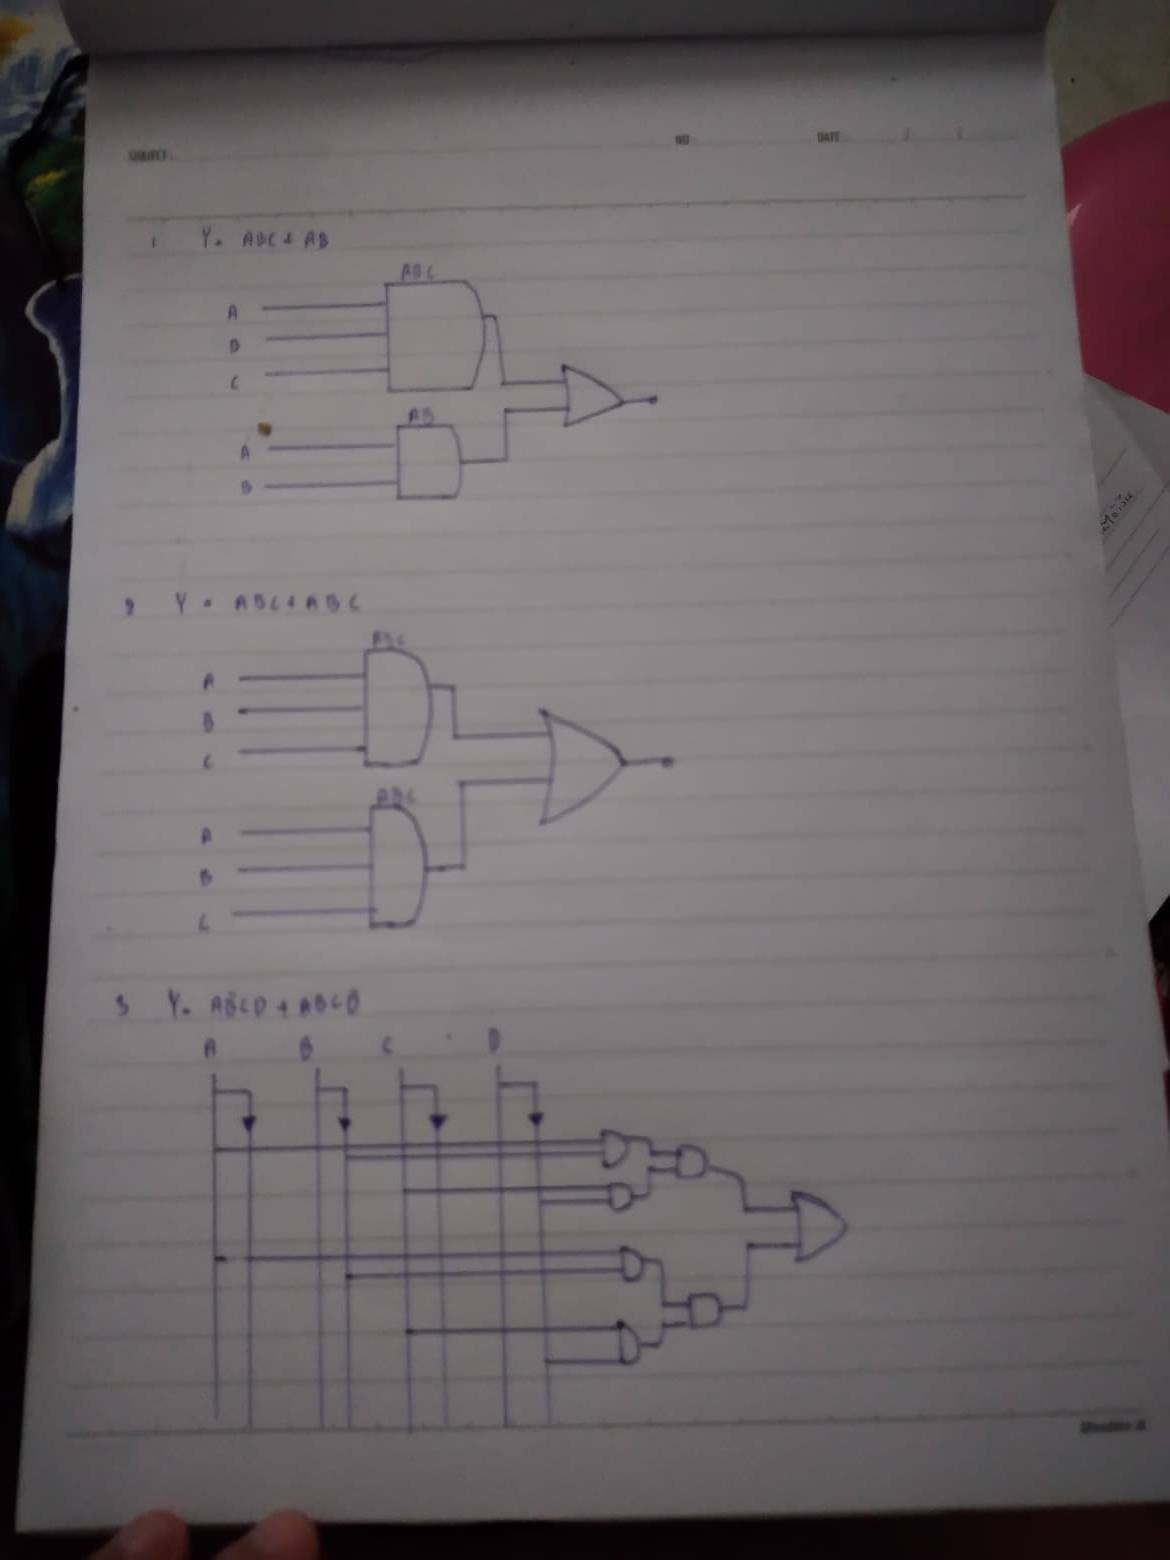 SUBJECT :
NO :
DATE : / /
1 Y = ABC + AB
ABC
A
B
C
AB
A
B
2 Y = ABC + ABC
ABC
A
B
C
ABC
A
B
C
3 Y = AB̄CD + ABCD̄
A B C D